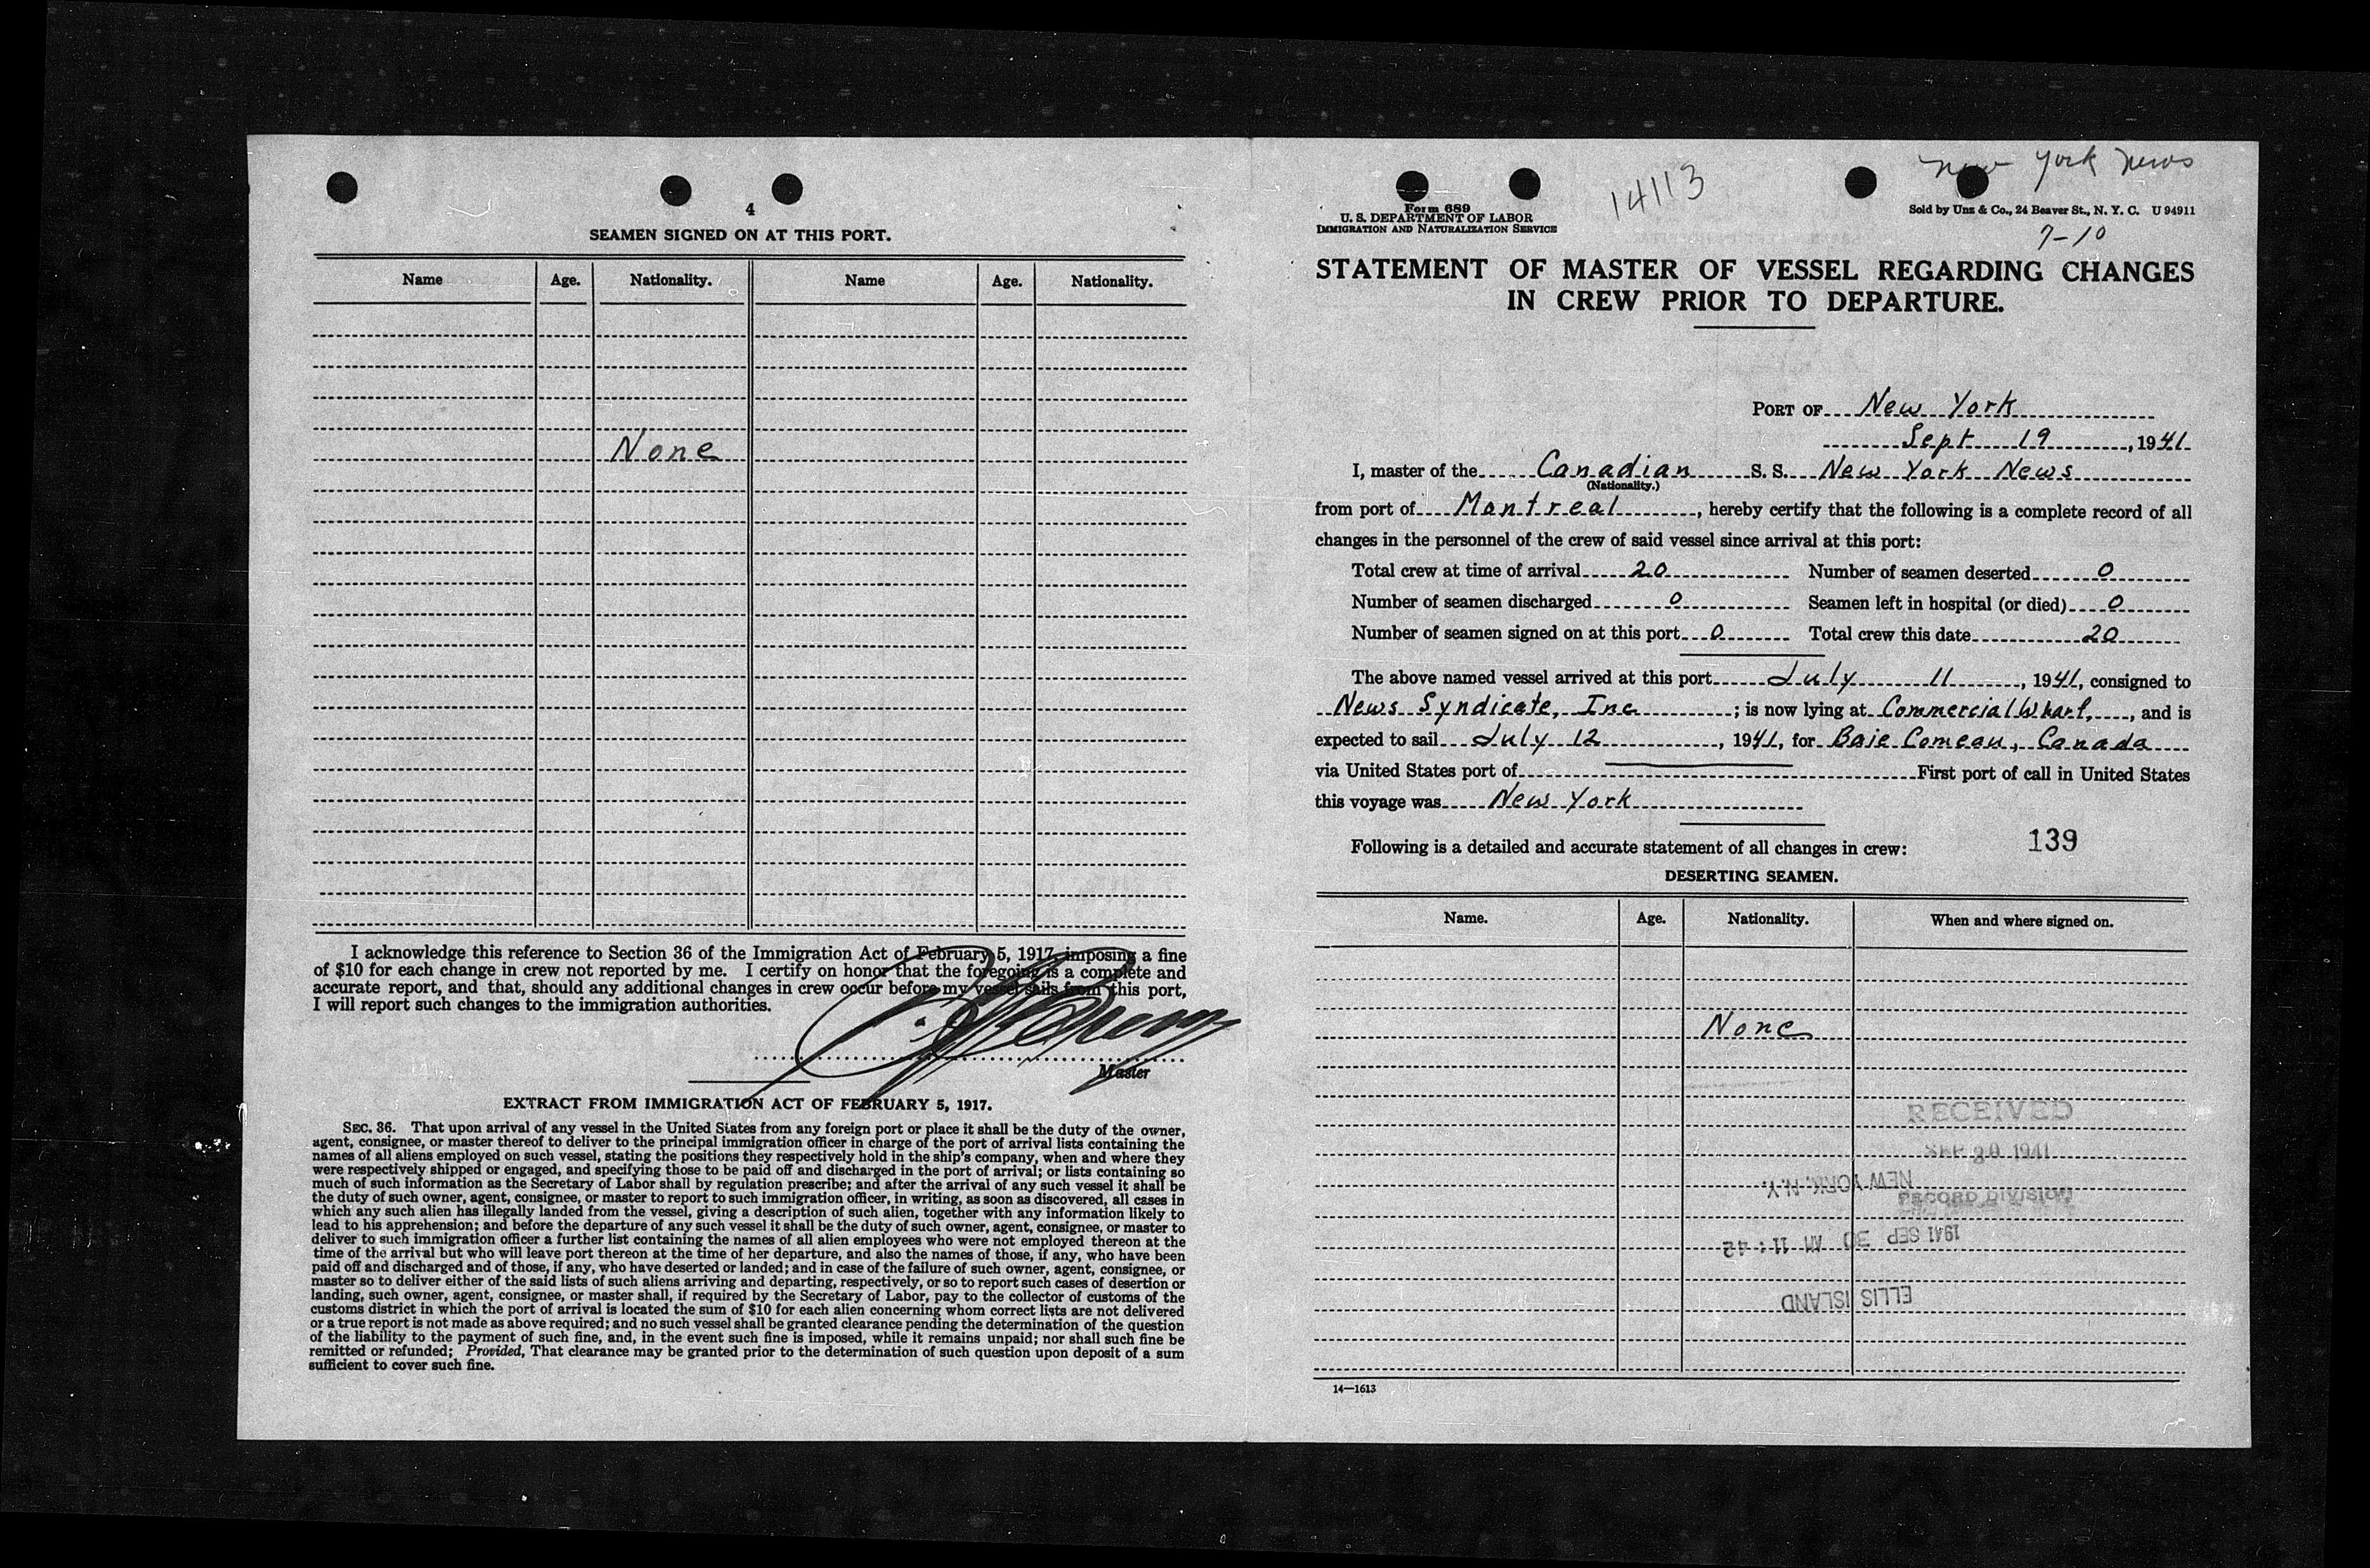 4
SEAMEN SIGNED ON AT THIS PORT.
Name Age. Nationality. Name Age. Nationality.
None
I acknowledge this reference to Section 36 of the Immigration Act of February 5, 1917, imposing a fine
of $10 for each change in crew not reported by me. I certify on honor that the foregoing is a complete and
accurate report, and that, should any additional changes in crew occur before my vessel sails from this port,
I will report such changes to the immigration authorities.
Master
EXTRACT FROM IMMIGRATION ACT OF FEBRUARY 5, 1917.
SEC. 36. That upon arrival of any vessel in the United States from any foreign port or place it shall be the duty of the owner,
agent, consignee, or master thereof to deliver to the principal immigration officer in charge of the port of arrival lists containing the
names of all aliens employed on such vessel, stating the positions they respectively hold in the ship's company, when and where they
were respectively shipped or engaged, and specifying those to be paid off and discharged in the port of arrival; or lists containing so
much of such information as the Secretary of Labor shall by regulation prescribe; and after the arrival of any such vessel it shall be
the duty of such owner, agent, consignee, or master to report to such immigration officer, in writing, as soon as discovered, all cases in
which any such alien has illegally landed from the vessel, giving a description of such alien, together with any information likely to
lead to his apprehension; and before the departure of any such vessel it shall be the duty of such owner, agent, consignee, or master to
deliver to such immigration officer a further list containing the names of all alien employees who were not employed thereon at the
time of the arrival but who will leave port thereon at the time of her departure, and also the names of those, if any, who have been
paid off and discharged and of those, if any, who have deserted or landed; and in case of the failure of such owner, agent, consignee, or
master so to deliver either of the said lists of such aliens arriving and departing, respectively, or so to report such cases of desertion or
landing, such owner, agent, consignee, or master shall, if required by the Secretary of Labor, pay to the collector of customs of the
customs district in which the port of arrival is located the sum of $10 for each alien concerning whom correct lists are not delivered
or a true report is not made as above required; and no such vessel shall be granted clearance pending the determination of the question
of the liability to the payment of such fine, and, in the event such fine is imposed, while it remains unpaid; nor shall such fine be
remitted or refunded; Provided, That clearance may be granted prior to the determination of such question upon deposit of a sum
sufficient to cover such fine.
New York News
14113
Form 689
U. S. DEPARTMENT OF LABOR
IMMIGRATION AND NATURALIZATION SERVICE
Sold by Unz & Co., 24 Beaver St., N. Y. C. U 94911
7-10
STATEMENT OF MASTER OF VESSEL REGARDING CHANGES
IN CREW PRIOR TO DEPARTURE.
PORT OF New York
Sept 19, 1941
I, master of the Canadian S. S. New York News
(Nationality.)
from port of Montreal, hereby certify that the following is a complete record of all
changes in the personnel of the crew of said vessel since arrival at this port:
Total crew at time of arrival 20 Number of seamen deserted 0
Number of seamen discharged 0 Seamen left in hospital (or died) 0
Number of seamen signed on at this port 0 Total crew this date 20
The above named vessel arrived at this port July 11, 1941, consigned to
News Syndicate, Inc; is now lying at Commercial Wharf, and is
expected to sail July 12, 1941, for Baie Comeau, Canada
via United States port of First port of call in United States
this voyage was New York
139
Following is a detailed and accurate statement of all changes in crew:
DESERTING SEAMEN.
Name. Age. Nationality. When and where signed on.
None
RECEIVED
SEP 30 1941
NEW YORK, N.Y.
RECORD DIVISION
1941 SEP 30 AM 11:42
ELLIS ISLAND
14—1613